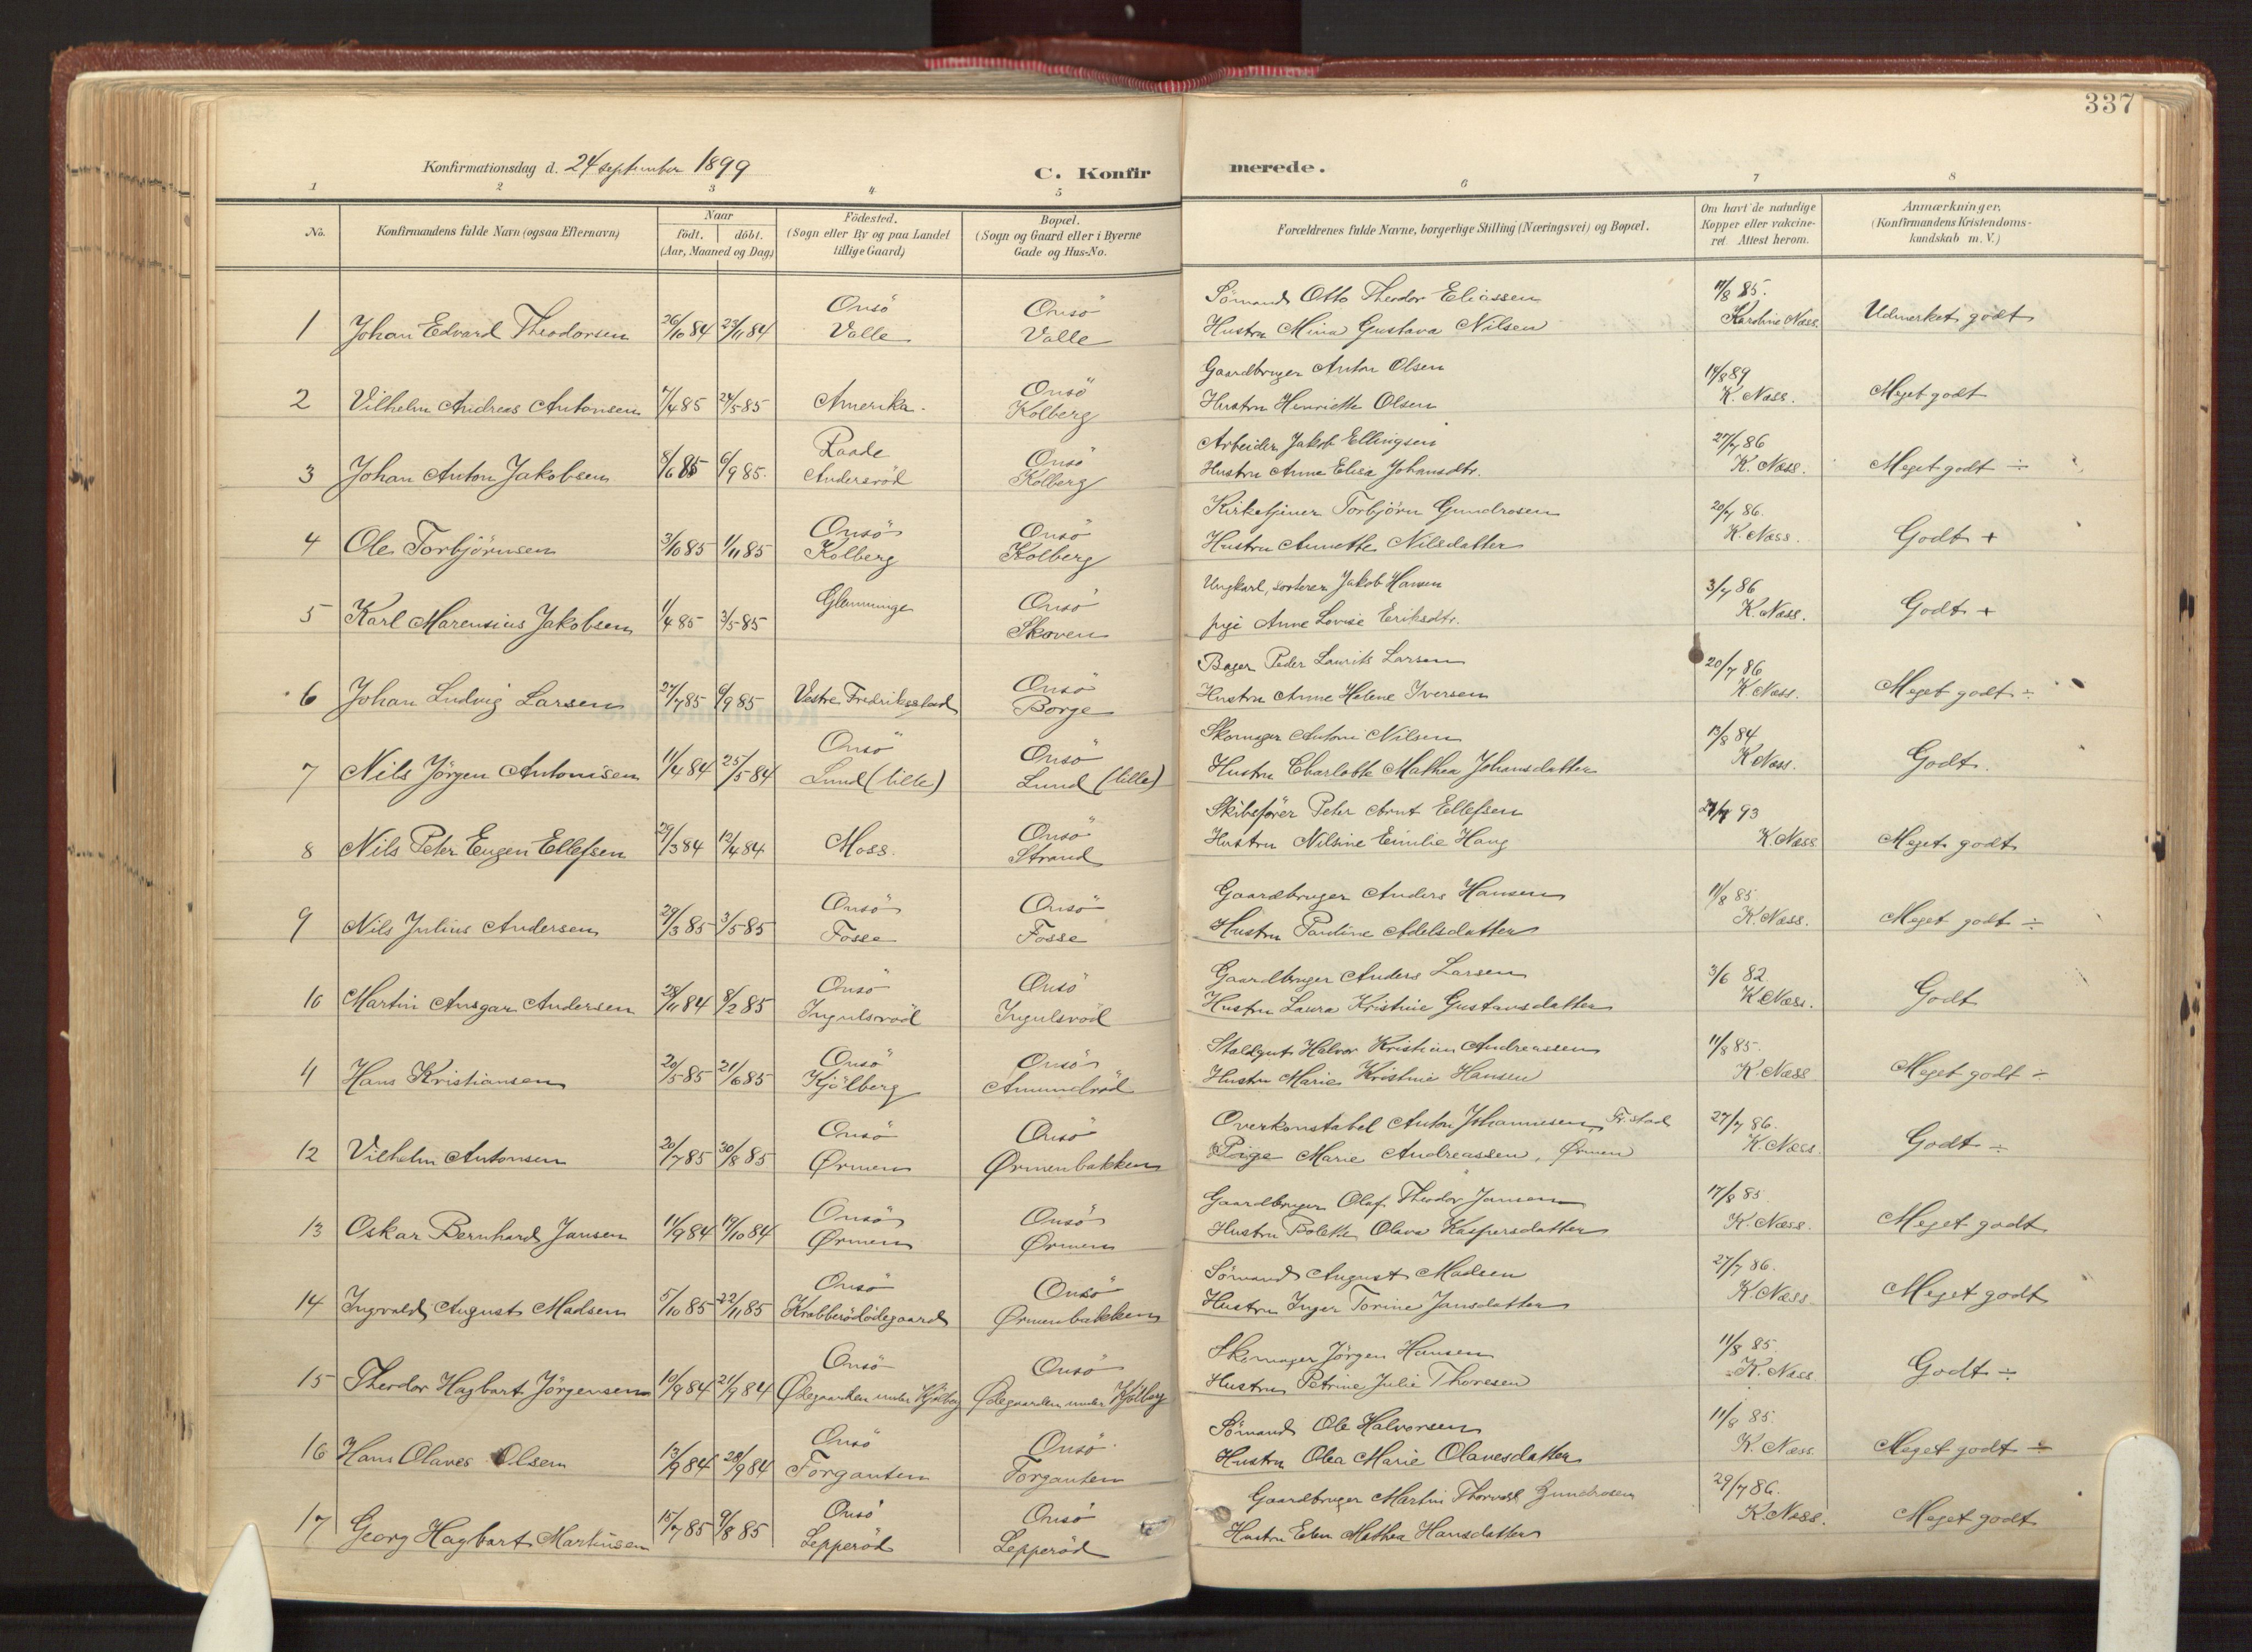 337
Konfirmationsdag d. 24 september 1899
C. Konfirmerede.
1 2 3 4 5 6 7 8
No. Konfirmandens fulde Navn (ogsaa Efternavn) Naar født. døbt. (Aar, Maaned og Dag) Födested. (Sogn eller By og paa Landet tillige Gaard) Bopæl. (Sogn og Gaard eller i Byerne Gade og Hus-No. Forældrenes fulde Navne, borgerlige Stilling (Næringsvei) og Bopæl. Om havt de naturlige Kopper eller vakcineret Attest herom. Anmærkninger, (Konfirmandens Kristendomskundskab m. V.)
Onsö Onsö Sömand Otto Theodor Eliassen 11/8 85.
1 Johan Edvard Theodorsen 26/10 84 23/11 84 Valle Valle Hustru Mina Gustava Nilsen Karoline Næss. Udmerket godt
Onsö Gaardbruger Anton Olsen 14/8 89
2 Vilhelm Andreas Antonsen 7/4 85 24/5 85 Amerika. Kolberg Hustru Henriette Olsen K. Næss. Meget godt
Raade Onsö Arbeider Jakob Ellingsen 27/7 86
3 Johan Anton Jakobsen 8/6 85 6/9 85. Andersröd Kolberg Hustru Anne Elisa Johansdtr. K. Næss. Meget godt ÷
Onsö Onsö Kirketjener Torbjörn Gundrosen 20/7 86.
4 Ole Torbjörnsen 3/10 85 1/11 85 Kolberg Kolberg Hustru Annette Nilsdatter K. Næss. Godt +
Glemminge Onsö Ungkarl, sorterer Jakob Hansen 3/7 86
5 Karl Marensius Jakobsen 1/4 85 3/5 85 Skoven pige Anne Lovise Eriksdtr. K. Næss. Godt +
Onsö Bager Peder Laurits Larsen 20/7 86
6 Johan Ludvig Larsen 27/7 85 6/9 85 Vestre Fredriksstad Borge Hustru Anne Helene Iversen K. Næss. Meget godt ÷
Onsö Onsö Skomager Antoni Nilsen 13/8 84
7 Nils Jörgen Antonisen 11/4 84 25/5 84 Lund (lille) Lund (lille) Hustru Charlotte Mathea Johansdatter K. Næss. Godt.
Onsö Skibsförer Peter Arnt Ellefsen 93
8 Nils Peter Eugen Ellefsen 29/3 84 12/4 84 Moss. Strand Hustru Nilsine Emilie Haug K. Næss Meget godt
Onsö Onsö Gaardbruger Anders Hansen 11/8 85
9 Nils Julius Andersen 29/3 85 3/5 85 Fosse Fosse Hustru Pauline Adelsdatter K. Næss. Meget godt ÷
Onsö Onsö Gaardbruger Anders Larsen 3/6 82.
10 Martin Ansgar Andersen 28/11 84 8/2 85 Ingulsröd Ingulsröd Hustru Laura Kristine Gustavsdatter K. Næss. Godt
Onsö Onsö Staldgut Halvor Kristian Andreassen 11/8 85.
11 Hans Kristiansen 20/5 85 21/6 85 Kjölberg Amundröd Hustru Marie Kristine Hansen K. Næss Meget godt ÷
Onsö Onsö Overkonstabel Anton Johannesen, Fr.stad 27/7 86.
12 Vilhelm Antonsen 20/7 85 30/8 85 Ørmen Ørmenbakken Pige Marie Andreassen, Ørmen K. Næss. Godt ÷
Onsö Onsö Gaardbruger Olaf Theodor Jansen 17/8 85.
13 Oskar Bernhard Jansen 11/9 84 19/10 84 Ørmen Ørmen Hustru Bolette Olava Kaspersdatter K. Næss. Meget godt
Onsö Onsö Sömand August Madsen 27/7 86.
14 Ingvald August Madsen 5/10 85 22/11 85 Krabberödödegaard Ørmenbakken Hustru Inger Torine Jansdatter K. Næss. Meget godt
Onsö Onsö Skomager Jörgen Hansen 11/8 85.
15 Theodor Hagbart Jörgensen 10/9 84 21/9 84 Ødegaarden under Kjölberg Ødegaarden under Kjölberg Hustru Petrine Julie Thoresen K. Næss. Godt ÷
Onsö Onsö Sömand Ole Halvorsen 11/8 85.
16 Hans Olaves Olsen 13/9 84 28/9 84 Torgauten Torgauten Hustru Olea Marie Olavesdatter K. Næss. Meget godt ÷
Onsö Onsö Gaardbruger Martin Thorvald Gundrosen 29/7 86.
17 Georg Hagbart Martinsen 15/7 85 9/8 85 Lepperöd Lepperöd Hustru Mathea Hansdatter K. Næss. Meget godt